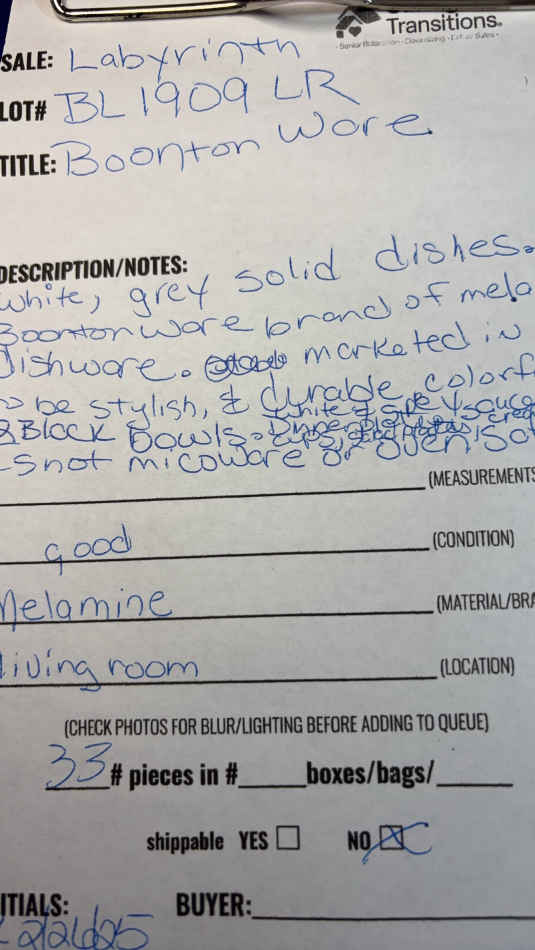 Transitions.
SALE: Labyrinth
LOT# BL1909 LR
TITLE: Boonton Ware
DESCRIPTION/NOTES:
white, grey solid dishes.
Boontonware brand of mela
Dishware. marketed in
to be stylish, & durable, colorf
& Black bowls. white & grey
snot micoware or oven
(MEASUREMENTS
good (CONDITION)
Melamine (MATERIAL/BRA
living room (LOCATION)
(CHECK PHOTOS FOR BLUR/LIGHTING BEFORE ADDING TO QUEUE)
33 # pieces in #______boxes/bags/______
shippable YES ☐ NO ☒
ITIALS: BUYER:
2/26/25